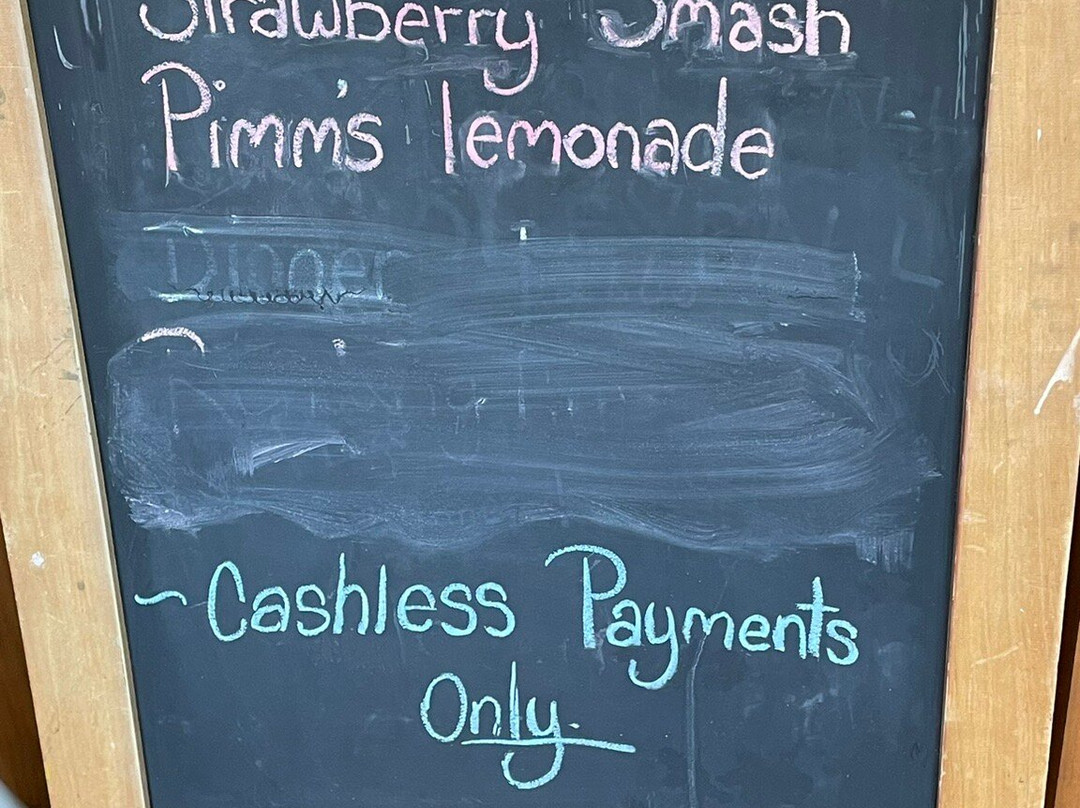 Strawberry Smash
Pimm's lemonade
Dinner
~ Cashless Payments
Only.